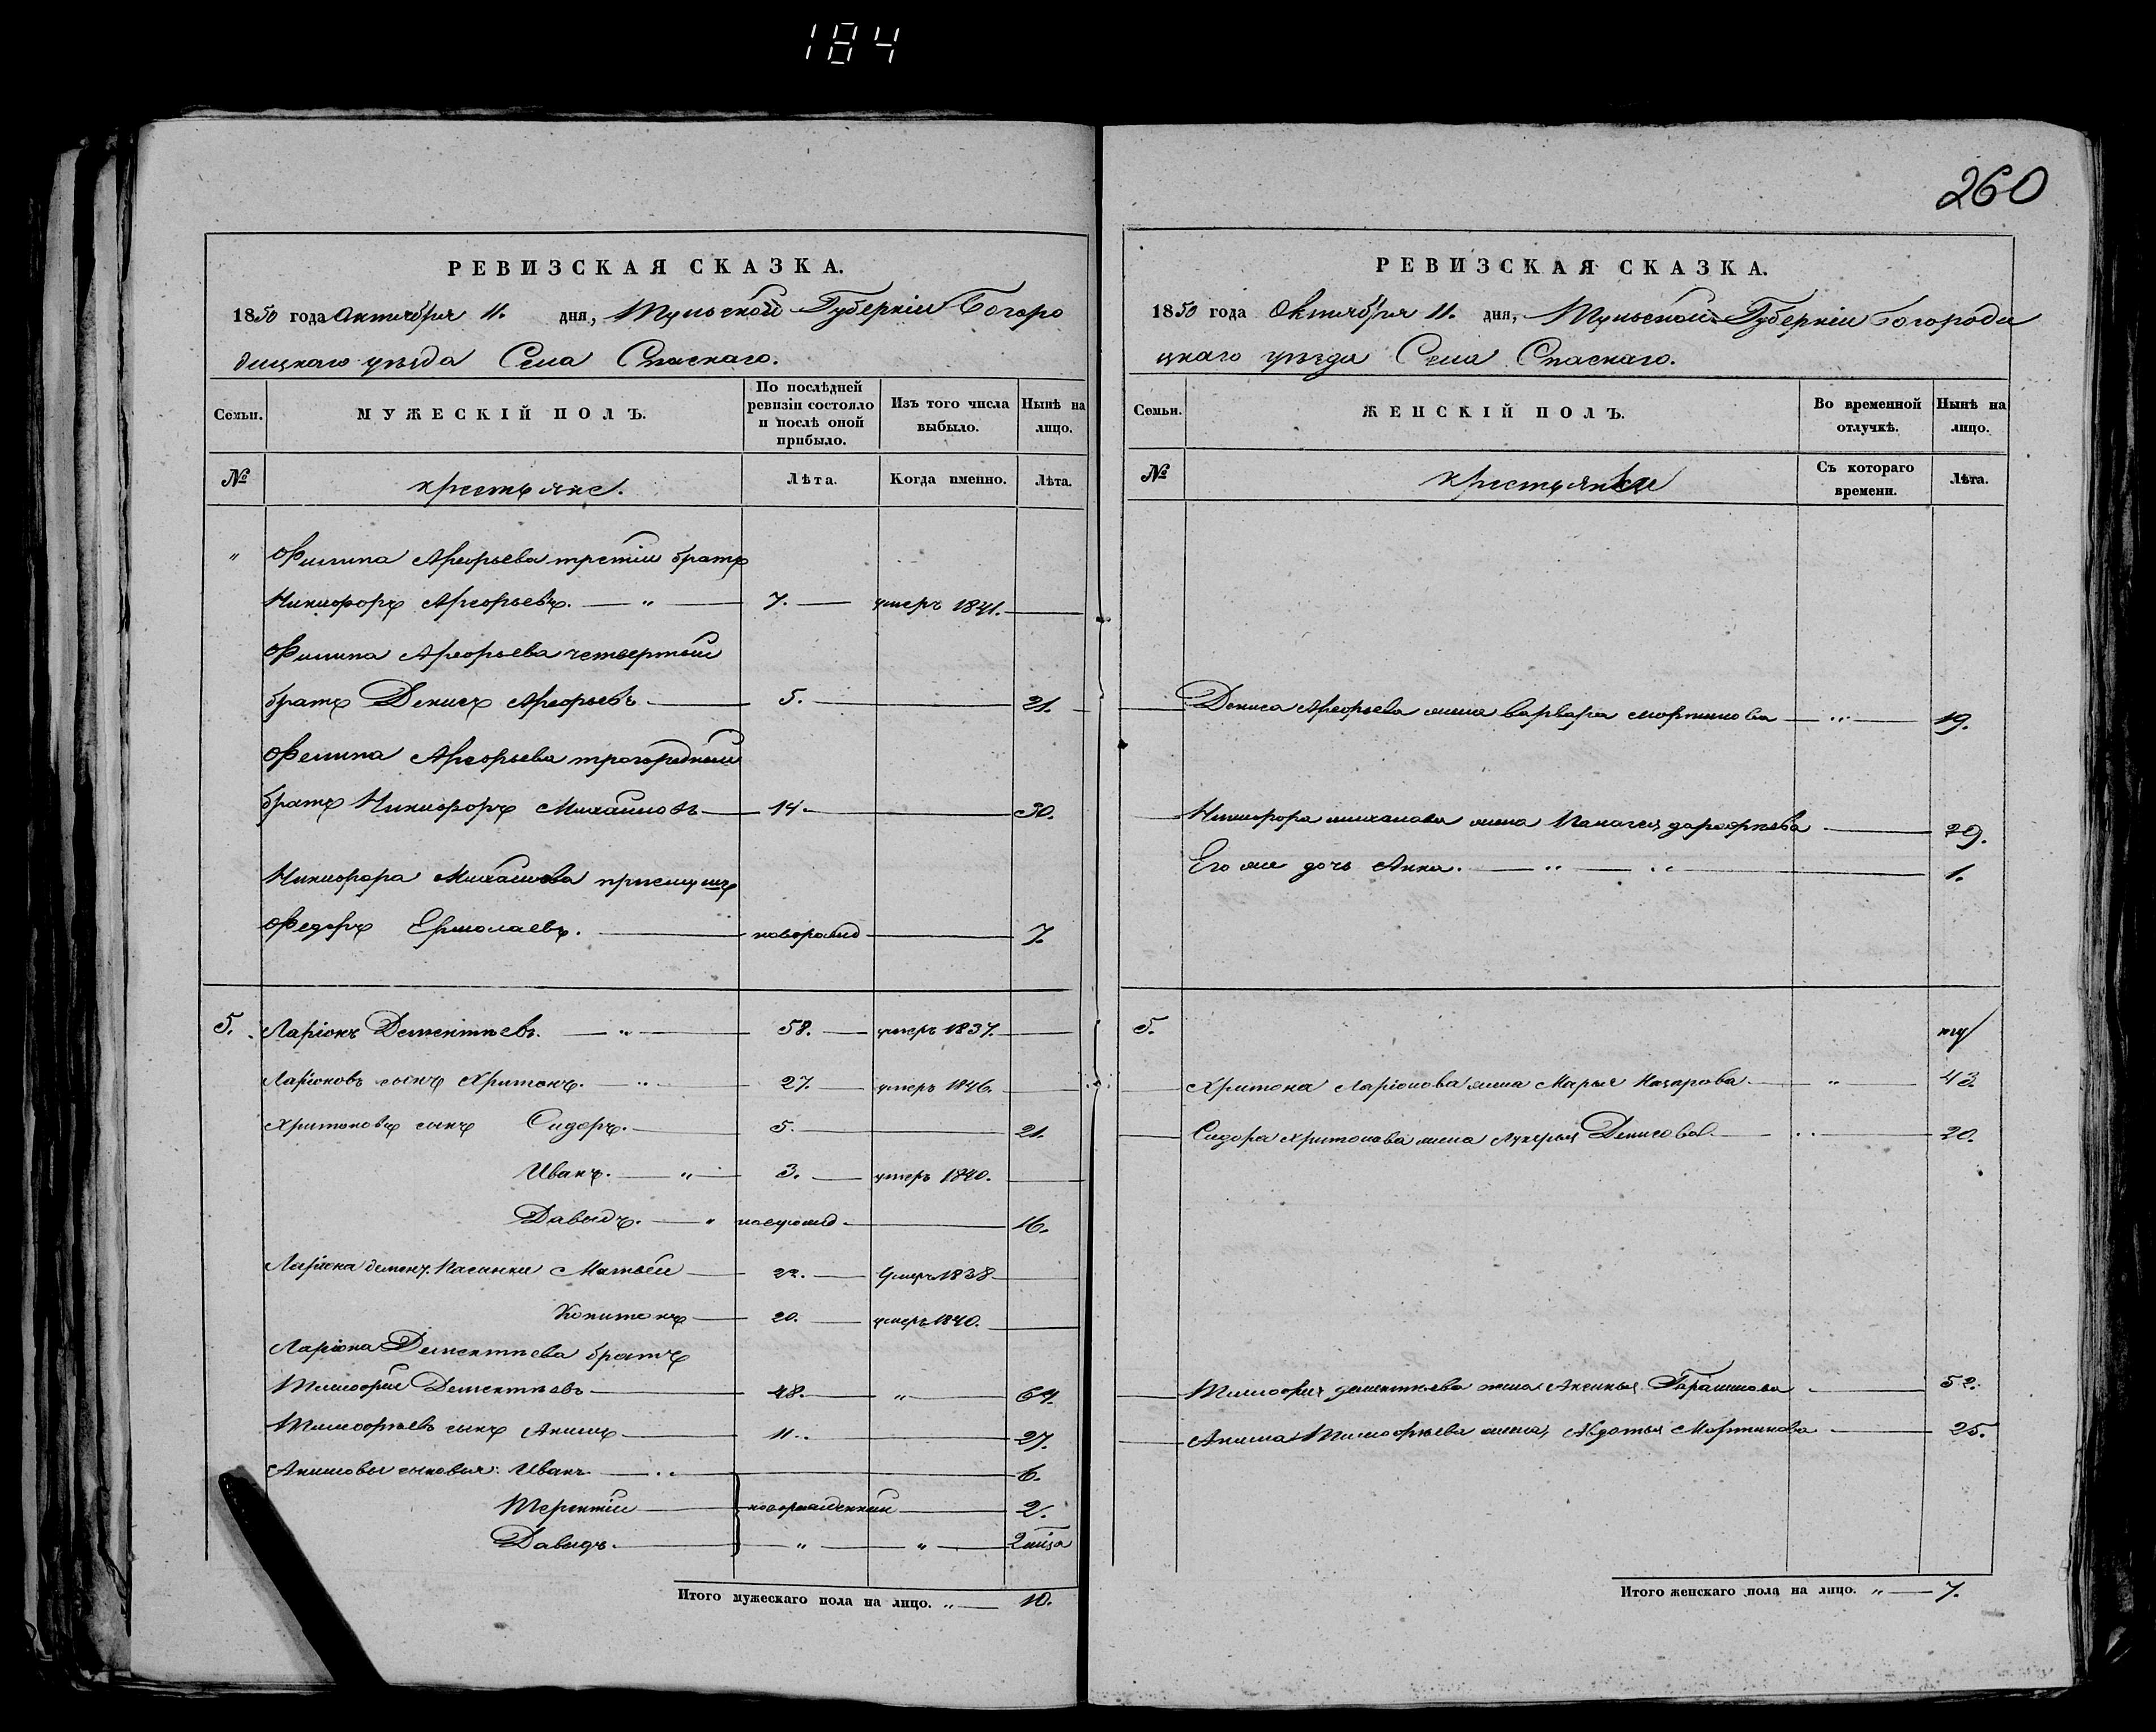 184
260
РЕВИЗСКАЯ СКАЗКА.
1850 года Октября 11. дня, Тульской Губерніи Богоро
дицкаго уѣзда Села Спаскаго.
Семьи. МУЖЕСКІЙ ПОЛЪ. По послѣдней ревизіи состояло и послѣ оной прибыло. Изъ того числа выбыло. Нынѣ на лицо.
№ крестьяне. Лѣта. Когда именно. Лѣта.
" Филипа Арефьева третій братъ
Никифоръ Арефьевъ. — " — 7. — умеръ 1841. —
Филипа Арефьева четвертый
братъ Денисъ Арефьевъ — 5. — 21.
Филипа Арефьева троюродный
братъ Никифоръ Михайловъ — 14. — 30.
Никифора Михайлова приемышъ
Федоръ Ермолаевъ. — новорожд — 7.
5. Ларіонъ Дементьевъ. — " — 58. — умеръ 1837. —
Ларіоновъ сынъ Хритонъ. — " — 27. — умеръ 1846. —
Хритоновъ сынъ Сидоръ. — 5. — 21.
Иванъ. — " — 3. — умеръ 1840. —
Давыдъ. — " новорожд — 16.
Ларіона Демен. Пасынки Матвей — 22. — Умеръ 1838 —
Копитонъ — 20. — умеръ 1840. —
Ларіона Дементьева братъ
Тимофей Дементьевъ — 48. — " — 64.
Тимофеевъ сынъ Акимъ — 11. — 27.
Акимовы сыновья: Иванъ — 6.
Терентій — новорожденный — 2.
Давыдъ. — " — " — 2 міса
Итого мужескаго пола на лицо. " — 10.
РЕВИЗСКАЯ СКАЗКА.
1850 года Октября 11. дня, Тульской Губерніи Богороди
цкаго уѣзда Села Спаскаго.
Семьи. ЖЕНСКІЙ ПОЛЪ. Во временной отлучкѣ. Нынѣ на лицо.
№ крестьянки Съ котораго времени. Лѣта.
Дениса Арефьева жена Варвара Мартинова — " — 19.
Никифора Михалова жена Палагея — 29.
Его же дочь Анна. — " — " — 1.
5.
Хритона Ларіонова жена Марья Назарова — " — 43
Сидора Хритонова жена Лукерья Денисова — " — 20.
Тимофея Дементьева жена Аксинья — 52.
Акима Тимофеева жена Авдотья Мартинова — 25.
Итого женскаго пола на лицо. " — 7.